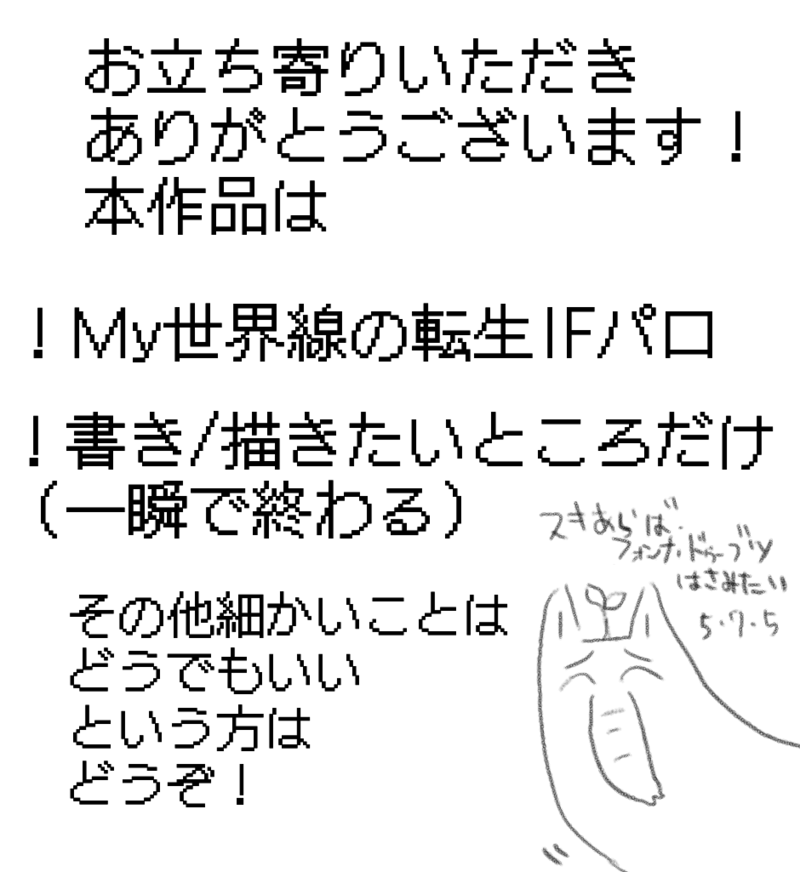 お立ち寄りいただき
ありがとうございます！
本作品は
！My世界線の転生IFパロ
！書き/描きたいところだけ
（一瞬で終わる）
スキあらば
フォンナ・ドゥーブツ
はさみたい
5・7・5
その他細かいことは
どうでもいい
という方は
どうぞ！